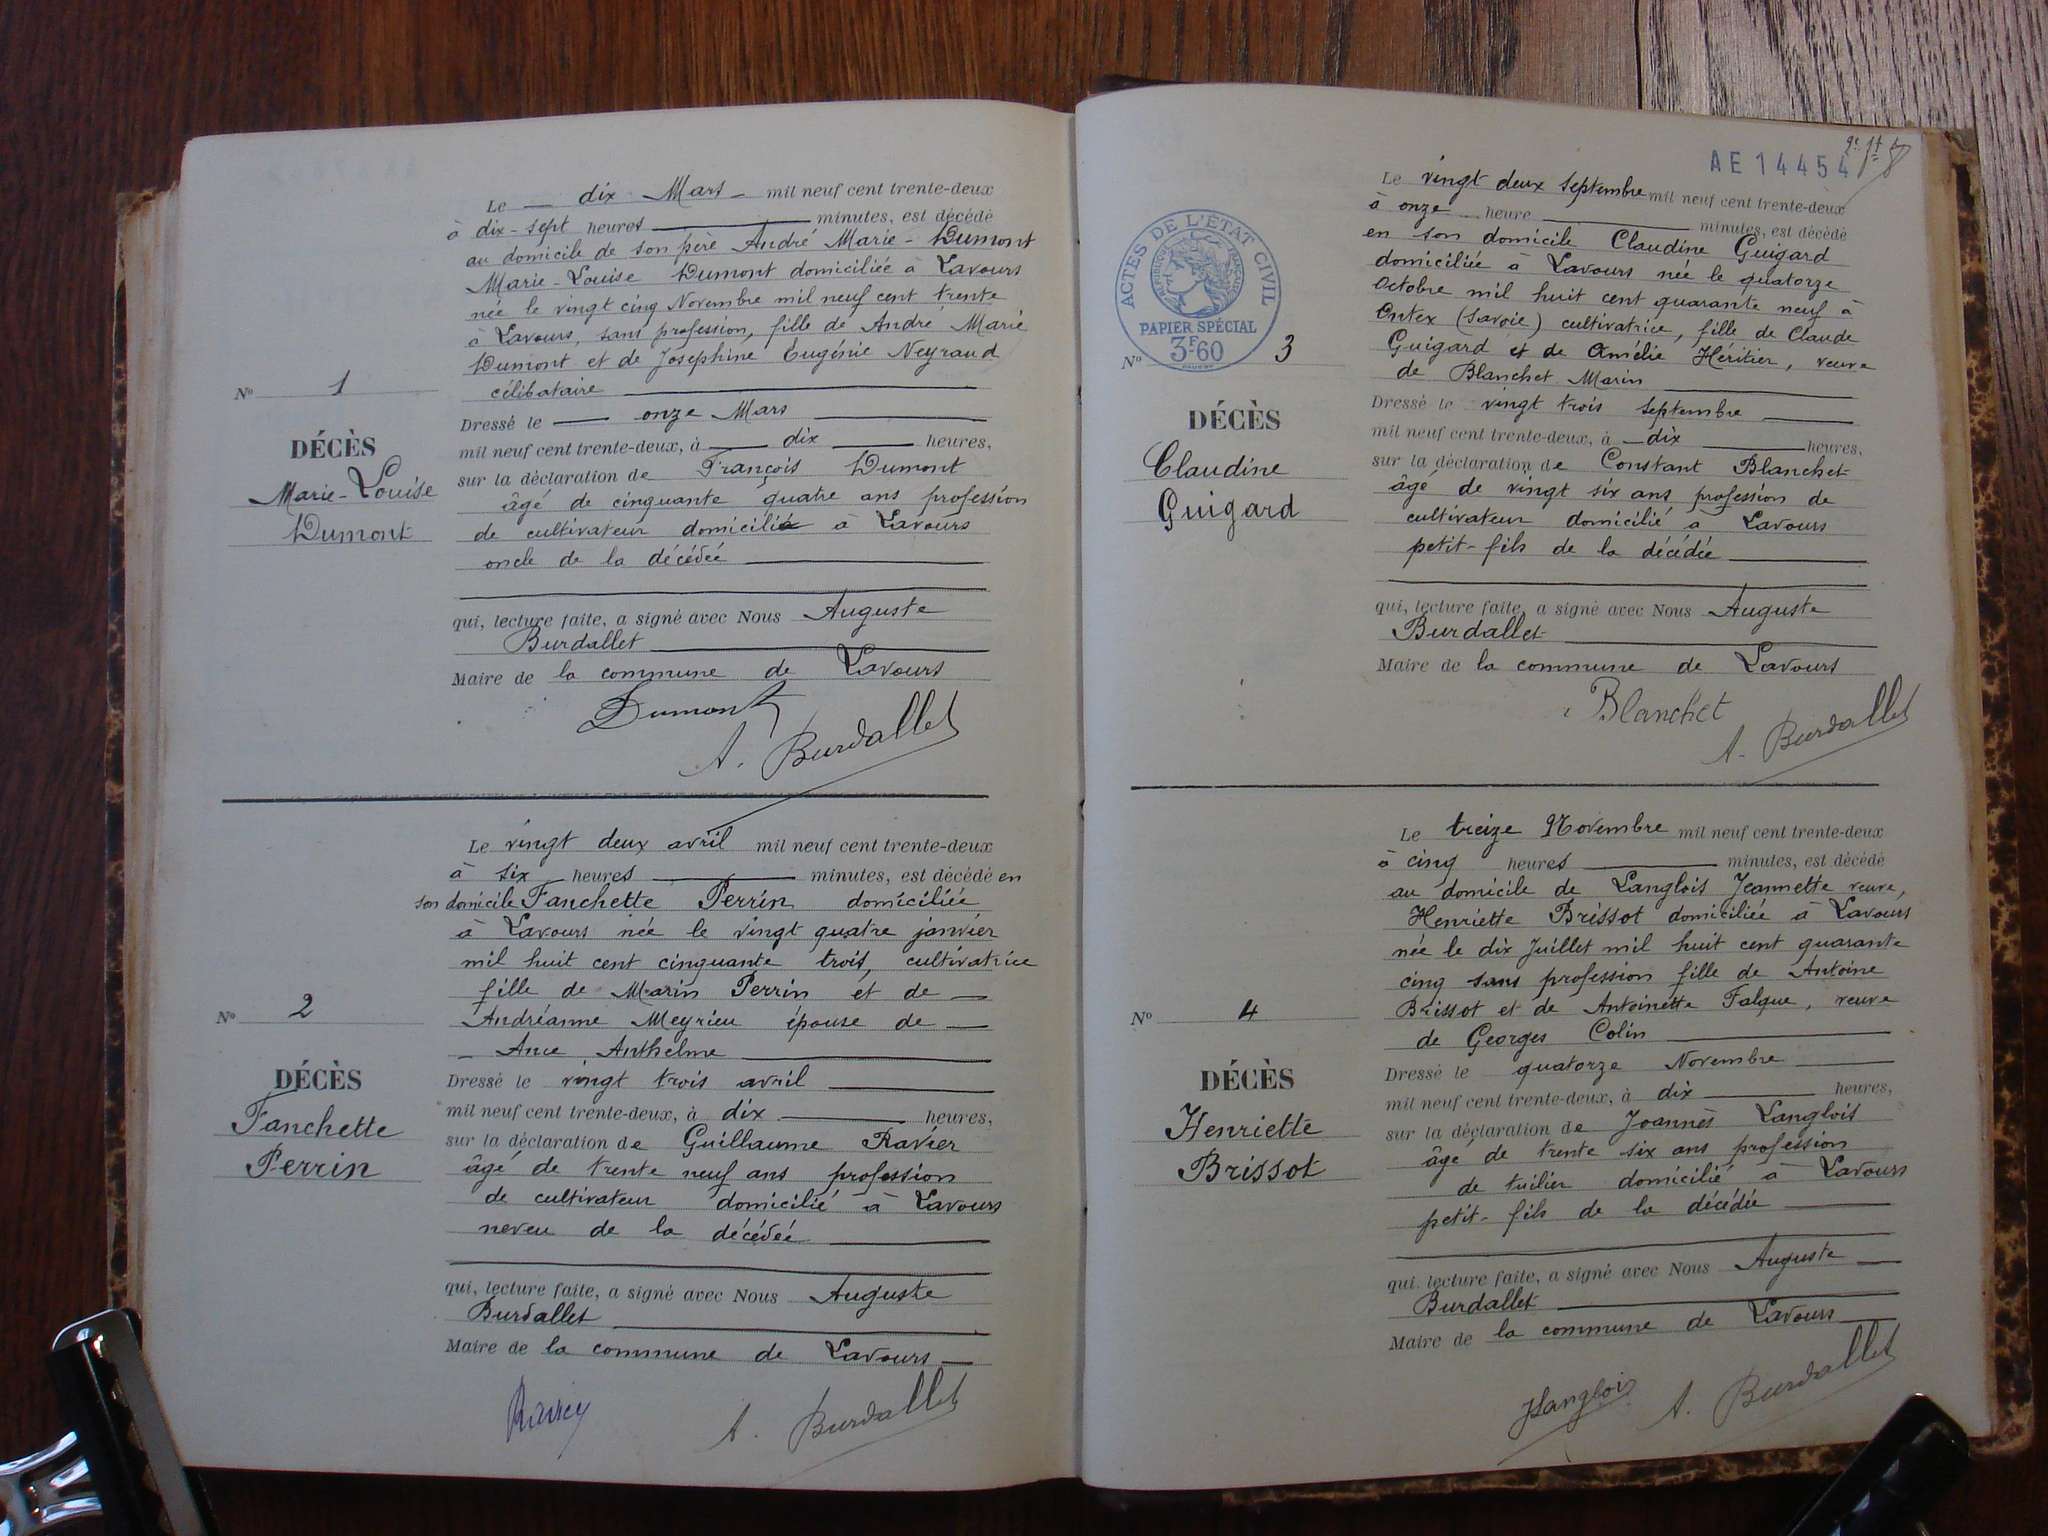 Le — dix Mars — mil neuf cent trente-deux
à dix-sept heures minutes, est décédé
au domicile de son père André Marie-Dumont
Marie-Louise Dumont domiciliée à Lavours
née le vingt cinq Novembre mil neuf cent trente
à Lavours, sans profession, fille de André Marie
Dumont et de Josephine Eugénie Neyraud
célibataire
Nº 1
DÉCÈS
Marie-Louise
Dumont
Dressé le onze Mars
mil neuf cent trente-deux, à dix heures,
sur la déclaration de François Dumont
âgé de cinquante quatre ans profession
de cultivateur domicilié à Lavours
oncle de la décédée
qui, lecture faite, a signé avec Nous Auguste
Burdallet
Maire de la commune de Lavours
Dumont
A. Burdallet
Le vingt deux avril mil neuf cent trente-deux
à six heures minutes, est décédé en
son domicile Fanchette Perrin domiciliée
à Lavours née le vingt quatre janvier
mil huit cent cinquante trois, cultivatrice
fille de Marin Perrin et de —
Andréanne Meyrieu épouse de —
— Ance Anthelme
Nº 2
DÉCÈS
Fanchette
Perrin
Dressé le vingt trois avril
mil neuf cent trente-deux, à dix heures,
sur la déclaration de Guillaume Ravier
âgé de trente neuf ans profession
de cultivateur domicilié à Lavours
neveu de la décédée
qui, lecture faite, a signé avec Nous Auguste
Burdallet
Maire de la commune de Lavours —
A. Burdallet
AE 14454
Le vingt deux septembre mil neuf cent trente-deux
à onze heure minutes, est décédé
en son domicile Claudine Guigard
domiciliée à Lavours née le quatorze
Octobre mil huit cent quarante neuf à
Ontex (Savoie) cultivatrice, fille de Claude
Guigard et de Amélie Héritier, veuve
de Blanchet Marin
ACTES DE L'ÉTAT CIVIL
RÉPUBLIQUE FRANÇAISE
PAPIER SPÉCIAL
3F.60
Nº 3
DÉCÈS
Claudine
Guigard
Dressé le vingt trois septembre
mil neuf cent trente-deux, à — dix heures,
sur la déclaration de Constant Blanchet
âgé de vingt six ans profession de
cultivateur domicilié à Lavours
petit-fils de la décédée
qui, lecture faite, a signé avec Nous Auguste
Burdallet
Maire de la commune de Lavours
Blanchet
A. Burdallet
Le treize Novembre mil neuf cent trente-deux
à cinq heures minutes, est décédé
au domicile de Langlois Jeannette veuve,
Henriette Brissot domiciliée à Lavours
née le dix Juillet mil huit cent quarante
cinq sans profession fille de Antoine
Brissot et de Antoinette Falque, veuve
de Georges Colin
Nº 4
DÉCÈS
Henriette
Brissot
Dressé le quatorze Novembre
mil neuf cent trente-deux, à dix heures,
sur la déclaration de Joannès Langlois
âgé de trente six ans profession
de tuilier domicilié à Lavours
petit-fils de la décédée
qui, lecture faite, a signé avec Nous Auguste —
Burdallet
Maire de la commune de Lavours
JLanglois
A. Burdallet